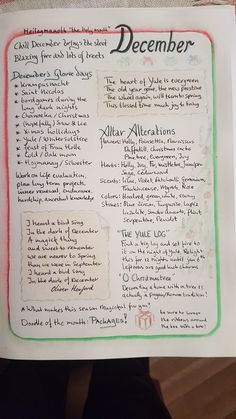 Heilagmanoth "the Holy month"
Chill December brings the sleet
Blazing fire and lots of treats
December
December's Glorie days
* Krampusnacht
* Saint Nicolas
* boardgames during the long dark nights
* Chanukka / Christmas
* (hopefully) Snow & Ice
* X-mas holidays
* Yule / Wintersolstice
* Feast of Frau Holle
* Cold / Oak moon
* Hogmanay / Silvester
Work on life evaluation,
plan long term projects,
inner renewal, endurance,
hardship, ancestral knowledge
I heard a bird sing
In the dark of December
A magical thing
and sweet to remember
we are nearer to Spring
than we were in September
I heard a bird sing
In the dark of December
Oliver Herford
The heart of Yule is evergreen
The old year gone, the new pristine
The wheel again, will turn to spring
This blessed time much joy to bring
Altar Alterations
flowers: Holly, Poinsettia, Narcissus
Daffodil, Christmas cactus
Pinetree, Evergreen, Ivy
Herbs: Holly, Ivy, Fir, mistletoe, Juniper
Sage, Cedarwood
Scents: Lilac, Violet, Patchouli, Geranium,
Frankincense, Myrrh, Rose
colors: bloodred, green, white,
Stones: Blue Zircon, Turquoise, Lapis
Lazuli, Smoke Quartz,
Serpentine, Peridot
"THE YULE LOG"
Find a big log and set fire to
it on the night of Yule. Relight
this for 12 nights until you
Leftovers are good luck charms
'O Christmastree'
Decorating a home with a tree is
actually a pagan/Roman tradition!
* What makes this season Magical for you?
Doodle of the month: PACKAGES!
be sure to merge
the ribbons around
the box with a bow!